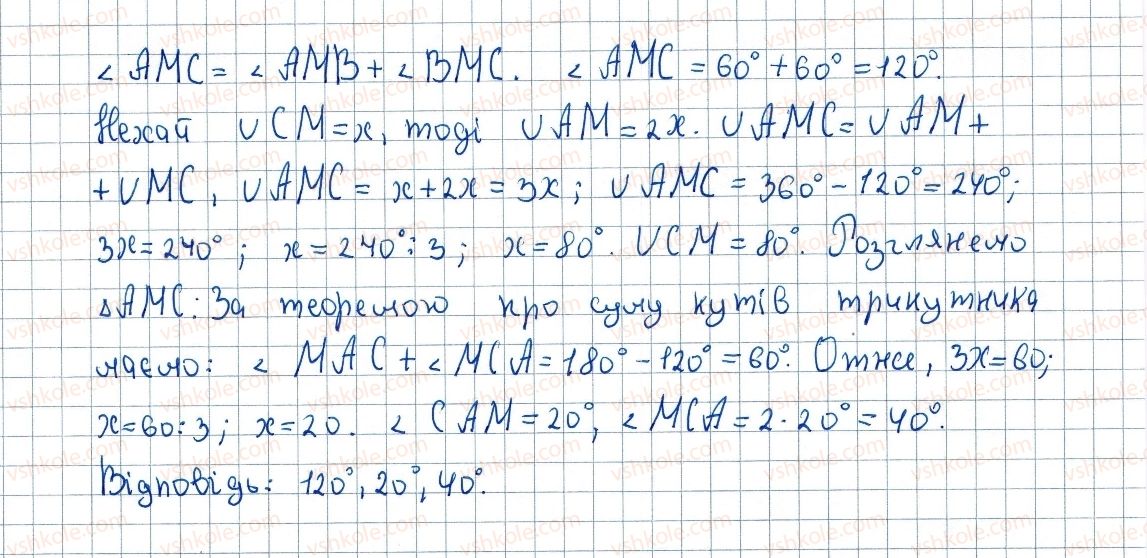 ∠ AMC = ∠ AMB + ∠ BMC. ∠ AMC = 60° + 60° = 120°.
Нехай ∪CM = x, тоді ∪AM = 2x. ∪AMC = ∪AM +
+ ∪MC, ∪AMC = x + 2x = 3x; ∪AMC = 360° - 120° = 240°;
3x = 240°; x = 240° : 3; x = 80°. ∪CM = 80°. Розглянемо
△AMC: За теоремою про суму кутів трикутника
маємо: ∠ MAC + ∠ MCA = 180° - 120° = 60°. Отже, 3x = 60;
x = 60 : 3; x = 20. ∠ CAM = 20°, ∠ MCA = 2 · 20° = 40°.
Відповідь: 120°, 20°, 40°.
vshkole.com